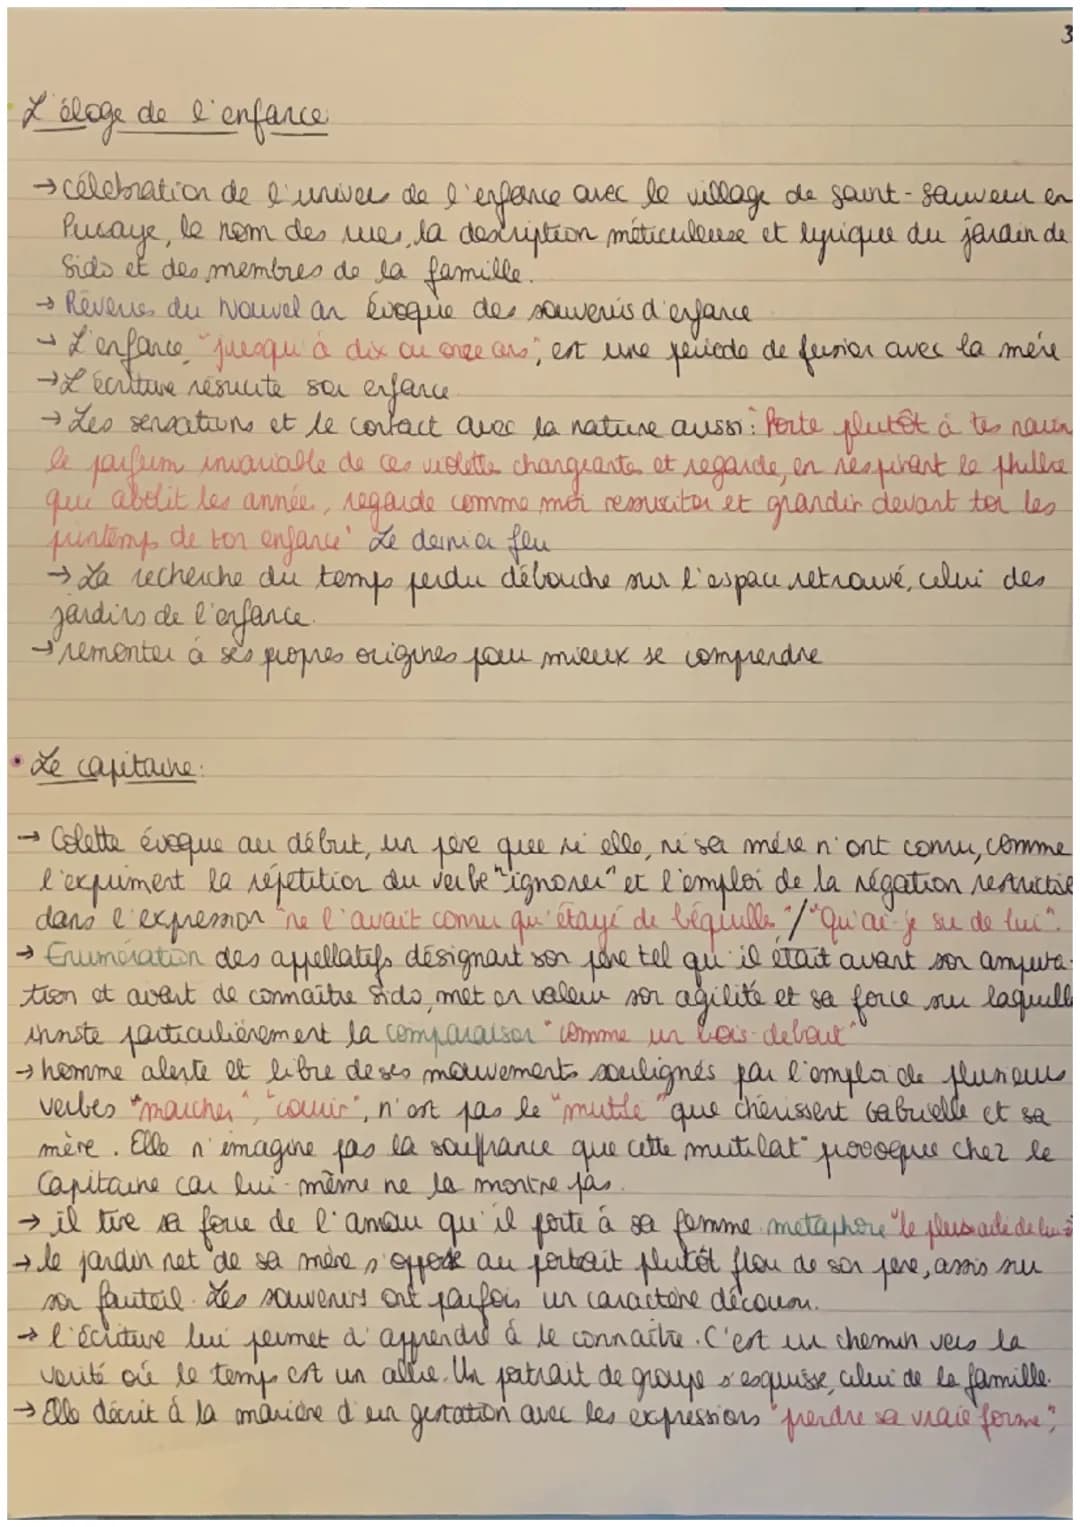 3
L'éloge de l'enfance
→ célébration de l'univers de l'enfance avec le village de saint-sauveur en
Puisaye, le nom des rues, la description méticuleuse et lyrique du jardin de
Sido et des membres de la famille.
→ Rêveries du Nouvel an évoque des souvenirs d'enfance
→ L'enfance, "jusqu'à dix ou onze ans", est une période de fusion avec la mère
→ L'écriture résucite son enfance
→ Les sensations et le contact avec la nature aussi: "Porte plutôt à tes narin
le parfum invariable de ces violettes changeantes et regarde, en respirant le philtre
qui abolit les année, regarde comme moi ressusciter et grandir devant toi les
printemps de ton enfance" Le dernier feu
→ La recherche du temps perdu débouche sur l'espace retrouvé, celui des
jardins de l'enfance.
→ remonter à ses propres origines pour mieux se comprendre
• Le capitaine:
→ Colette évoque au début, un père que ni elle, ni sa mère n'ont connu, comme
l'expriment la répétition du verbe "ignorer" et l'emploi de la négation restrictive
dans l'expression "ne l'avait connu qu'étayé de béquilles"/"Qu'ai-je su de lui".
→ Enumération des appellatifs désignant son père tel qu'il était avant son amputa-
tion et avant de connaître Sido, met en valeur son agilité et sa force sur laquelle
insiste particulièrement la comparaison "comme un bois-debout"
→ homme alerte et libre de ses mouvements soulignés par l'emploi de plusieurs
verbes "marcher", "courir", n'est pas le "mutilé" que chérissent Gabrielle et sa
mère. Elle n'imagine pas la souffrance que cette mutilat° provoque chez le
Capitaine car lui-même ne la montre pas.
→ il tire sa force de l'amour qu'il porte à sa femme métaphore "le plus
→ le jardin net de sa mère s'oppose au portrait plutôt flou de son père, assis sur
son fauteuil. Les souvenirs ont parfois un caractère décousu.
→ l'écriture lui permet d'apprendre à le connaître. C'est un chemin vers la
vérité où le temps est un allié. Un portrait de groupe s'esquisse, celui de la famille.
→ Elle décrit à la manière d'un gestation avec les expressions "prendre sa vraie forme",